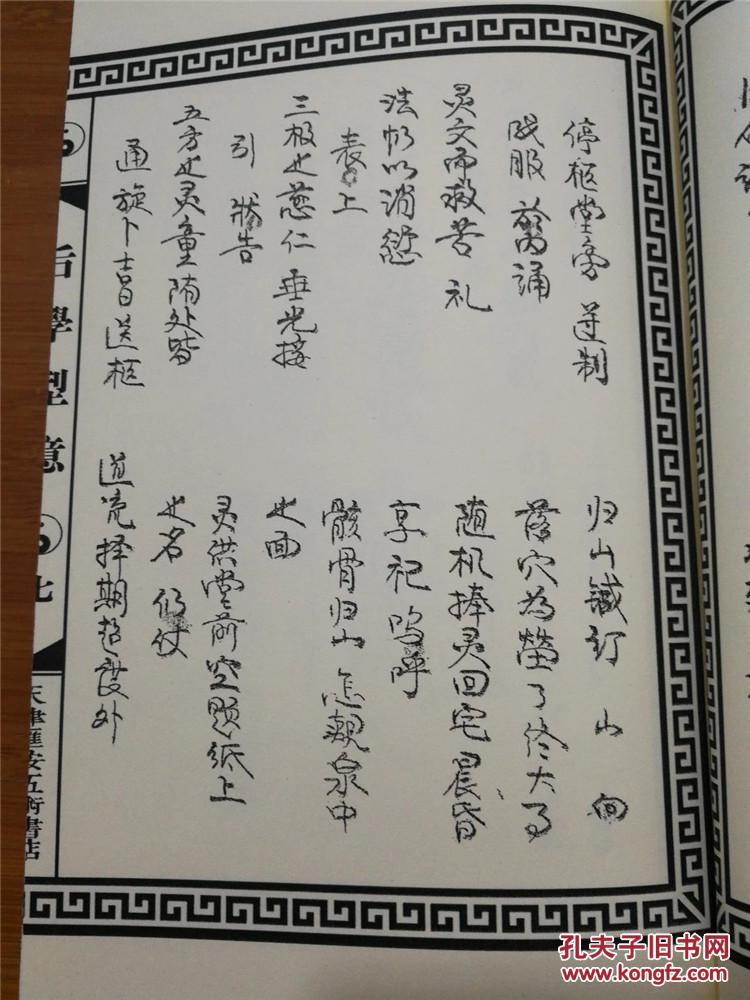 停柩堂旁 遵制
成服 於内诵
灵文而救苦 礼
法忏以消愆
表上
三极之慈仁 垂光接
引 牒告
五方之灵童 随处皆
通 旋卜吉日送柩
归山针钉 山 向
落穴为茔 了佟大事
随机捧灵回宅 晨昏
享祀 呜呼
骸骨归山 怎觌泉中
之面
灵供堂前 空题纸上
之名 仍仗
道流择期超度外
后學
天津匯安五術書店
孔夫子旧书网
www.kongfz.com